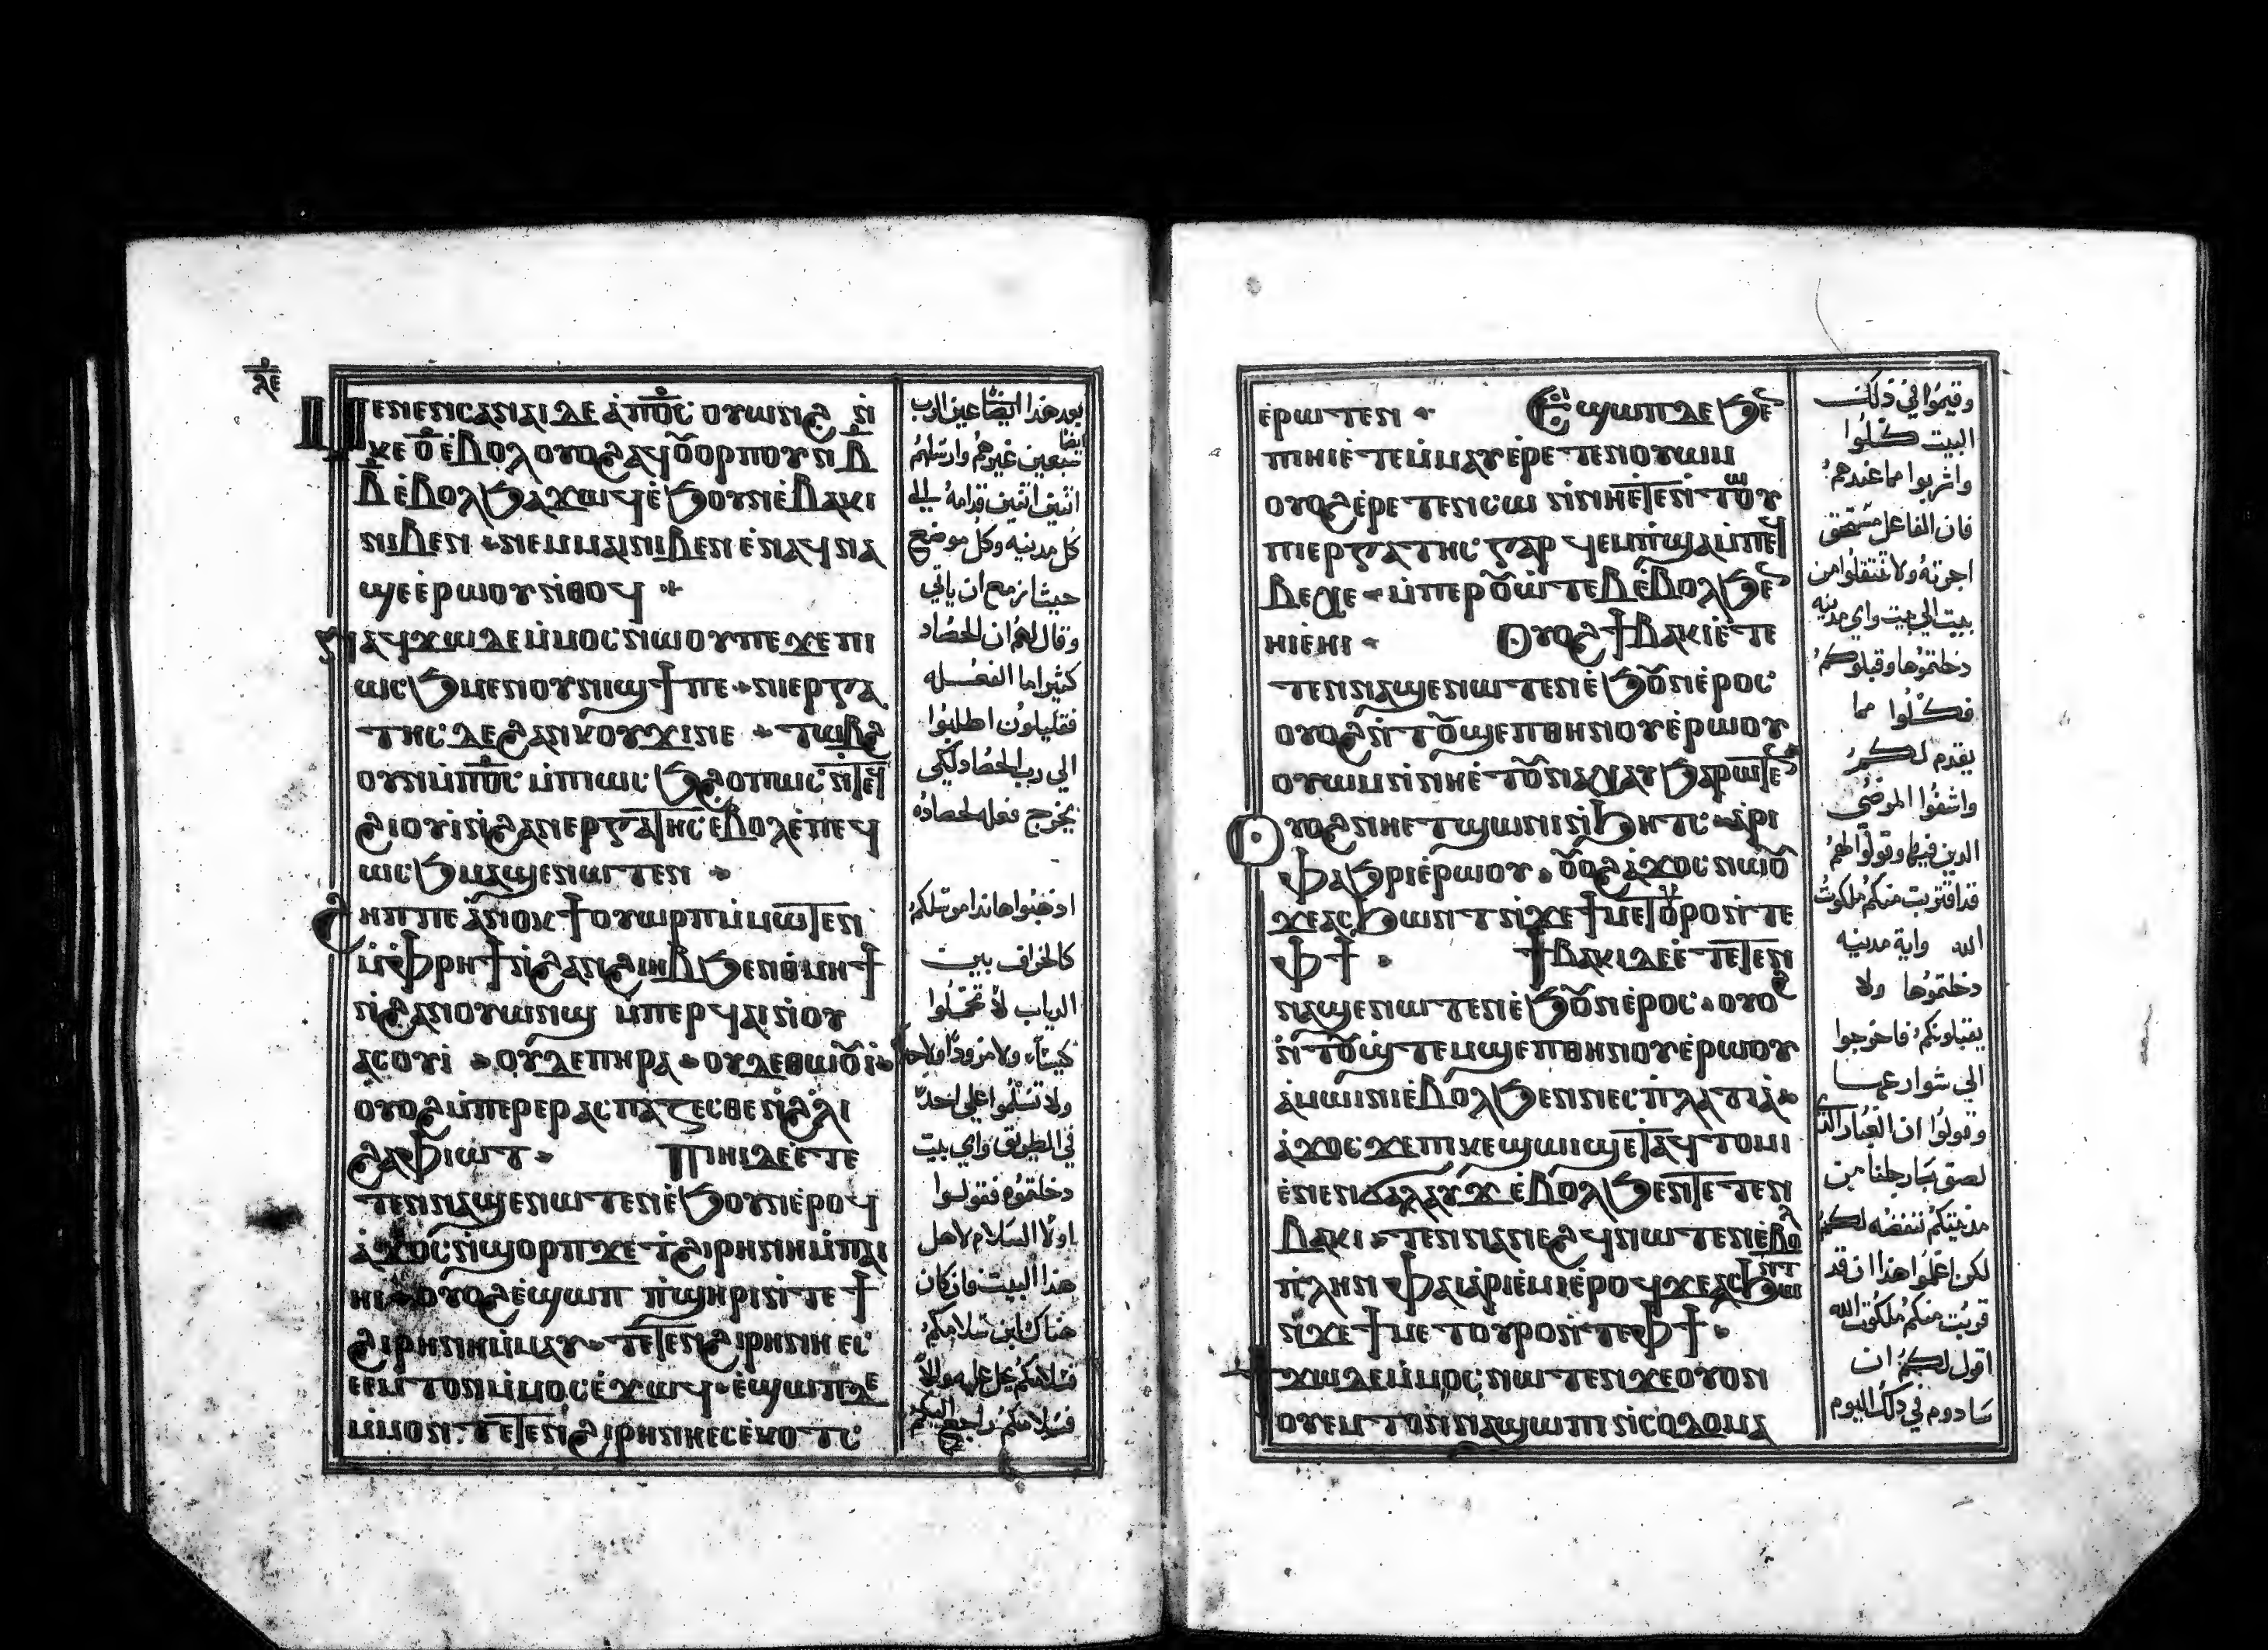 ⲗⲉ
ⲙⲉⲛⲉⲛⲥⲁⲛⲁⲓ ⲇⲉ ⲁ̀ⲡⲟ̅ⲥ̅ ⲟⲩⲱⲛϩ ⲛ̀
ⲕⲉ ⲟ̅ ⲉ̀ⲃⲟⲗ ⲟⲩⲟϩ ⲁϥⲟ̅ⲟⲣⲡⲟⲩ ⲛ ⲃ̅
ⲃ̅ ⲉ̀ⲃⲟⲗ ϧⲁϫⲱϥ ⲉ̀ϧⲟⲩⲛ ⲉ̀ⲃⲁⲕⲓ
ⲛⲓⲃⲉⲛ ⲛⲉⲙ ⲙⲁⲓ ⲛⲓⲃⲉⲛ ⲉ̀ⲛⲁϥⲛⲁ
ϣⲉ ⲉ̀ⲣⲱⲟⲩ ⲛ̀ⲑⲟϥ
ⲛⲁϥϫⲱ ⲇⲉ ⲙ̀ⲙⲟⲥ ⲛⲱⲟⲩ ⲡⲉ ϫⲉ ⲡⲓ
ⲱⲥϧ ⲙⲉⲛ ⲟⲩⲛⲓϣϯ ⲡⲉ ⲛⲓⲉⲣⲅⲁ
ⲧⲏⲥ ⲇⲉ ϩⲁⲛⲕⲟⲩϫⲓ ⲛⲉ ⲧⲱⲃϩ
ⲟⲩⲛ ⲙ̀ⲡⲟ̅ⲥ̅ ⲙ̀ⲡⲓⲱⲥϧ ϩⲟⲡⲱⲥ ⲛ̀ⲧⲉϥ
ϩⲓⲟⲩⲓ̀ ⲛ̀ϩⲁⲛⲉⲣⲅⲁⲧⲏⲥ ⲉ̀ⲃⲟⲗ ⲉ̀ⲡⲉϥ
ⲱⲥϧ ⲙⲁϣⲉⲛⲱⲧⲉⲛ
ϩⲏⲡⲡⲉ ⲁ̀ⲛⲟⲕ ϯⲟⲩⲱⲣⲡ ⲙ̀ⲙⲱⲧⲉⲛ
ⲙ̀ⲫⲣⲏϯ ⲛ̀ϩⲁⲛϩⲓⲏⲃ ϧⲉⲛ ⲑⲙⲏϯ
ⲛ̀ϩⲁⲛⲟⲩⲱⲛϣ ⲙ̀ⲡⲉⲣϥⲁⲓ ⲛ̀ⲟⲩ
ⲁⲥⲟⲩⲓ̀ ⲟⲩⲇⲉ ⲡⲏⲣⲁ ⲟⲩⲇⲉ ⲑⲱⲟ̅ⲓ̀
ⲟⲩⲟϩ ⲙ̀ⲡⲉⲣⲉⲣⲁⲥⲡⲁⲍⲉⲥⲑⲉ ⲛ̀ϩⲗⲓ
ϩⲁ ⲫⲙⲱⲓⲧ ⲡⲓⲏⲓ ⲇⲉ ⲉ̀ⲧⲉ
ⲧⲉⲛⲛⲁϣⲉⲛⲱⲧⲉⲛ ⲉ̀ϧⲟⲩⲛ ⲉ̀ⲣⲟϥ
ⲁ̀ϫⲟⲥ ⲛ̀ϣⲟⲣⲡ ϫⲉ ⲧ̀ϩⲓⲣⲏⲛⲏ ⲙ̀ⲡⲁⲓ
ⲏⲓ ⲟⲩⲟϩ ⲉ̀ϣⲱⲡ ⲡ̀ϣⲏⲣⲓ ⲛ̀ⲧⲉ ϯ
ϩⲓⲣⲏⲛⲏ ⲙ̀ⲙⲁⲩ ⲧⲉⲧⲉⲛϩⲓⲣⲏⲛⲏ ⲉⲥ
ⲉⲉⲙⲧⲟⲛ ⲙ̀ⲙⲟⲥ ⲉ̀ϫⲱϥ ⲉ̀ϣⲱⲡ ⲇⲉ
ⲙ̀ⲙⲟⲛ ⲧⲉⲧⲉⲛϩⲓⲣⲏⲛⲏ ⲉⲥⲉ̀ⲕⲟⲧⲥ
بعد هذا ايضا عين الرب
سبعين غيرهم وارسلهم ايضا
اثنين اثنين قدامه الي
كل مدينه وكل موضع
حيث ازمع ان ياتي
وقال لهم ان الحصاد
كثير اما الفعله
فقليلون اطلبوا
الي رب الحصاد لكي
يخرج فعله لحصاده
اذهبوا هاندا مرسلكم
كالخراف بين
الدياب لا تحملوا
كيسًا ولا مزودًا ولا حذا
ولا تسلموا علي احد
في الطريق واي بيت
دخلتموه فقولوا
اولًا السلام لاهل
هذا البيت فان كان
هناك ابن سلامكم
فسلامكم يحل عليه والا
فسلامكم راجع اليكم
ⲉ̀ⲣⲱⲧⲉⲛ ⲉ̀ϣⲱⲡ ⲇⲉ ϧⲉ
ⲡⲓⲏⲓ ⲉ̀ⲧⲉⲙⲙⲁⲩ ⲉ̀ⲣⲉⲧⲉⲛⲟⲩⲱⲙ
ⲟⲩⲟϩ ⲉ̀ⲣⲉⲧⲉⲛⲥⲱ ⲛ̀ⲛⲏ ⲉ̀ⲧⲉⲛ̀ⲧⲱⲟⲩ
ⲡⲓⲉⲣⲅⲁⲧⲏⲥ ⲅⲁⲣ ϥⲉⲙⲡϣⲁ ⲙ̀ⲡⲉϥ
ⲃⲉⲭⲉ ⲙ̀ⲡⲉⲣⲟ̅ⲱ̀ⲧⲉⲃ ⲉ̀ⲃⲟⲗ ϧⲉ
ⲏⲓ ⲉ̀ⲏⲓ ⲟⲩⲟϩ ϯⲃⲁⲕⲓ ⲉ̀ⲧⲉ
ⲧⲉⲛⲛⲁϣⲉⲛⲱⲧⲉⲛ ⲉ̀ϧⲟ̅ⲛ ⲉ̀ⲣⲟⲥ
ⲟⲩⲟϩ ⲛ̀ⲧⲟ̅ϣⲉⲡ ⲑⲏⲛⲟⲩ ⲉ̀ⲣⲱⲟⲩ
ⲟⲩⲱⲙ ⲛ̀ⲛⲏ ⲉ̀ⲧⲟ̅ⲛⲁⲭⲁⲩ ϧⲁⲣⲱⲧⲉ
ⲟⲩⲟϩ ⲛⲏ ⲉⲧϣⲱⲛⲓ ⲛ̀ϧⲏⲧⲥ ⲁ̀ⲣⲓ
ⲫⲁϧⲣⲓ ⲉ̀ⲣⲱⲟⲩ ⲟ̅ⲟϩ ⲁ̀ϫⲟⲥ ⲛⲱⲟ̅
ϫⲉ ⲁⲥϧⲱⲛⲧ ⲛ̀ϫⲉ ϯⲙⲉⲧⲟⲩⲣⲟ ⲛ̀ⲧⲉ
ⲫϯ ϯⲃⲁⲕⲓ ⲇⲉ ⲉ̀ⲧⲉⲧⲉⲛ
ⲛⲁϣⲉⲛⲱⲧⲉⲛ ⲉ̀ϧⲟ̅ⲛ ⲉ̀ⲣⲟⲥ ⲟⲩⲟϩ
ⲛ̀ⲧⲟ̅ϣⲧⲉⲙϣⲉⲡ ⲑⲏⲛⲟⲩ ⲉ̀ⲣⲱⲟⲩ
ⲁ̀ⲙⲱⲓⲛⲓ ⲉ̀ⲃⲟⲗ ϧⲉⲛ ⲛⲉⲥⲡ̀ⲗⲁⲧⲓⲁ̀
ⲁ̀ϫⲟⲥ ϫⲉ ⲡⲓⲕⲉϣⲱⲓϣ ⲉⲧⲁϥⲧⲟⲙⲓ
ⲉ̀ⲛⲉⲛϭⲁⲗⲁⲩϫ ⲉ̀ⲃⲟⲗ ϧⲉⲛ ⲧⲉⲧⲉⲛ
ⲃⲁⲕⲓ ⲧⲉⲛⲛⲁⲛⲉϩϥ ⲛⲱⲧⲉⲛ ⲉ̀ⲃⲟⲗ
ⲡ̀ⲗⲏⲛ ⲫⲁⲓ ⲁ̀ⲣⲓⲉ̀ⲙⲓ ⲉ̀ⲣⲟϥ ϫⲉ ⲁⲥϧⲱⲛⲧ
ⲛ̀ϫⲉ ϯⲙⲉⲧⲟⲩⲣⲟ ⲛ̀ⲧⲉ ⲫϯ
ϯϫⲱ ⲇⲉ ⲙ̀ⲙⲟⲥ ⲛⲱⲧⲉⲛ ϫⲉ ⲟⲩⲟⲛ
ⲟⲩⲉⲙⲧⲟⲛ ⲛⲁϣⲱⲡⲓ ⲛ̀ⲥⲟⲇⲟⲙⲁ
وقيموا في ذلك
البيت كلوا
واشربوا مما عندهم
فان الفاعل مستحق
اجرته ولا تنتقلوا من
بيت الي بيت واي مدينه
دخلتموها وقبلوكم
فكلوا مما
يقدم لكم
واشفوا المرضي
الذين فيها وقولوا لهم
قد اقتربت منكم ملكوت
الله واية مدينه
دخلتموها ولا
يقبلونكم فاخرجوا
الي شوارعها
وقولوا ان الغبار الذي
لصق بارجلنا من
مدينتكم ننفضه لكم
لكن اعلموا هذا ان قد
قربت منكم ملكوت الله
اقول لكم ان
سادوم في ذلك اليوم